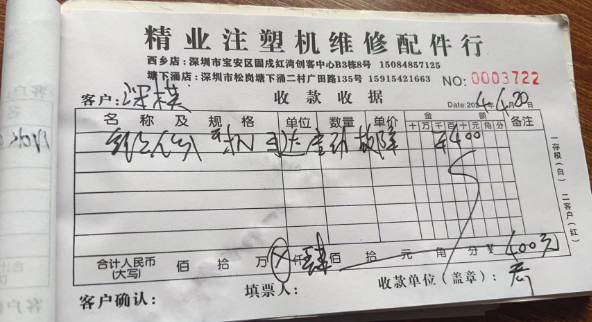 精业注塑机维修配件行
西乡店：深圳市宝安区固戍红湾创客中心B3栋8号 15084857125
塘下涌店：深圳市松岗塘下涌二村广田路135号 15915421663
NO: 0003722
客户： 收款收据 Date:2024年6月20日
名称及规格 单位 数量 单价 金额 备注
十 万 千 百 十 元 角 分
机 马达启动故障 ¥400
合计人民币（大写） 佰 拾 万 仟 肆 佰 拾 元 角 分 ¥ 400元
客户确认： 填票人： 收款单位（盖章）：
一存根（白） 二客户（红）